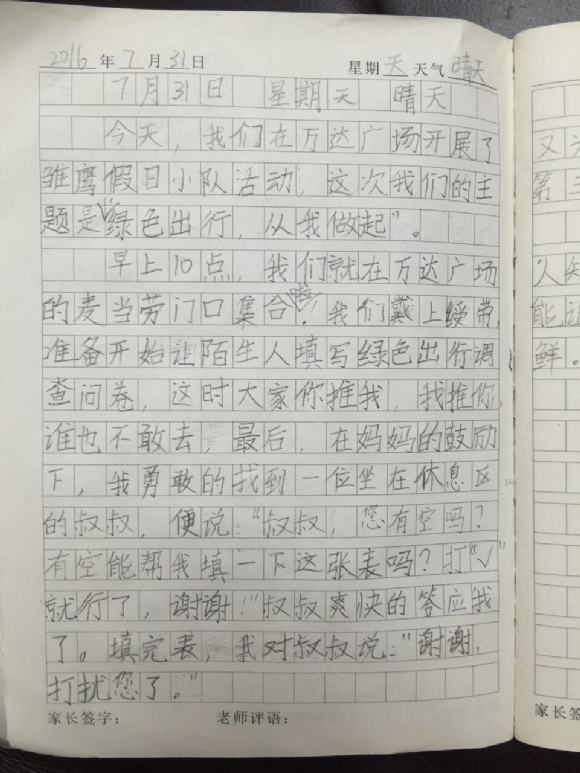 2016年7月31日 星期天 天气晴天
7月31日 星期天 晴天
今天，我们在万达广场开展了
雏鹰假日小队活动，这次我们的主
题是“绿色出行，从我做起”。
早上10点，我们就在万达广场
的麦当劳门口集合啦！我们戴上绶带，
准备开始让陌生人填写绿色出行调
查问卷，这时大家你推我，我推你，
谁也不敢去，最后，在妈妈的鼓励
下，我勇敢的找到一位坐在休息区
的叔叔，便说：“叔叔，您有空吗？
有空能帮我填一下这张表吗？打“√”
就行了，谢谢！”叔叔爽快的答应我
了。填完表，我对叔叔说：“谢谢，
打扰您了。”
家长签字： 老师评语：
又
第三
人知
能让
鲜。
家长签